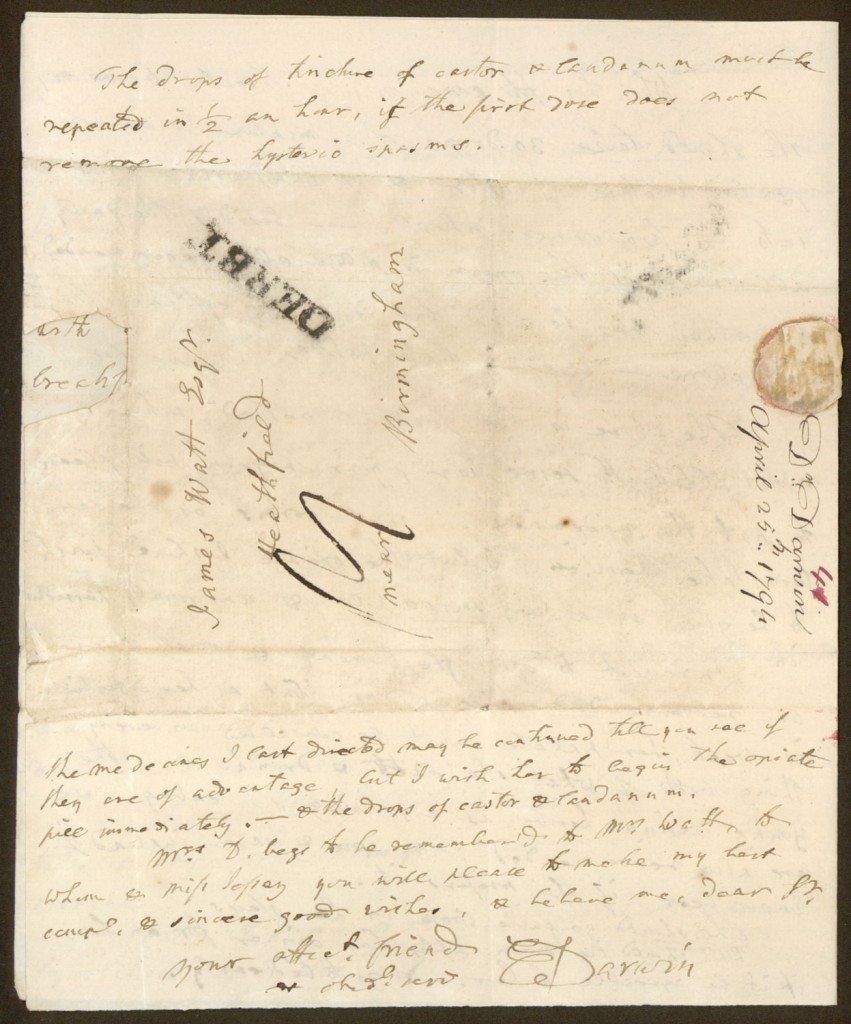 The drops of tincture of castor & laudanum must be
repeated in 1/2 an hour, if the first dose does not
remove the hysteric spasms.
DERBY
James Watt Esqr.
Heathfield
near Birmingham
breakf
Dr. Darwin
April 25th. 1794
41
The medecines I last directed may be continued till you see if
they are of advantage, but I wish her to begin the opiate
pill immediately. — & the drops of castor & laudanum.
Mrs D. begs to be rememberd to Mrs Watt, to
whom & Miss Jessey you will please to make my best
compl. & sincere good wishes, & believe me, dear Sr,
your affect. friend
& obed. serv
E Darwin